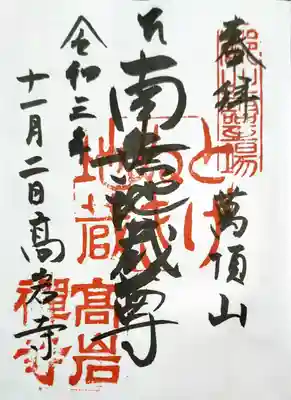 奉拝
萬頂山
南無地蔵尊
令和三年
十一月二日 高岩寺
とげ
ぬき
地蔵
高岩
禪寺